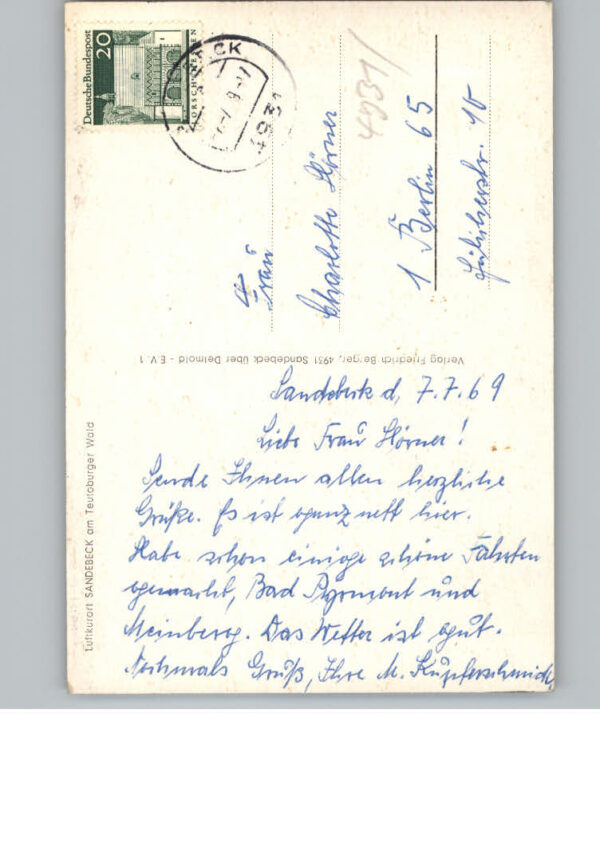 Deutsche Bundespost
20
LORSCH/HESSEN
4931/
Frau
Charlotte Hörner
1 Berlin 65
Jülicherstr. 10
Verlag Friedrich Berger, 4931 Sandebeck über Detmold - E.V. 1
Luftkurort SANDEBECK am Teutoburger Wald
Sandebeck d, 7.7.69
Liebe Frau Hörner!
Sende Ihnen allen herzliche
Grüße. Es ist ganz nett hier.
Habe schon einige schöne Fahrten
gemacht, Bad Pyrmont und
Meinberg. Das Wetter ist gut.
Nochmals Gruß, Ihre M. Kupferschmidt